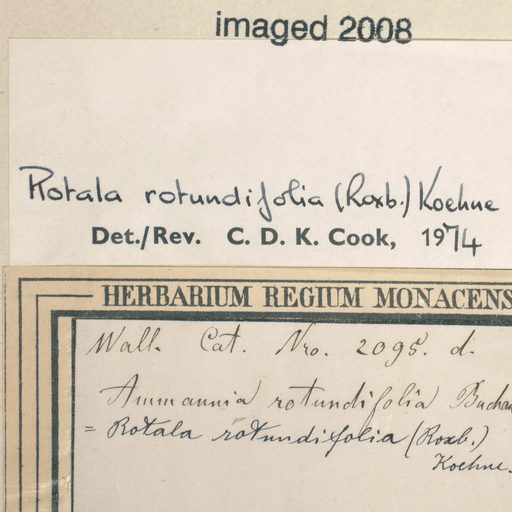 imaged 2008
Rotala rotundifolia (Roxb.) Koehne
Det./Rev. C. D. K. Cook, 1974
HERBARIUM REGIUM MONACENS
Wall. Cat. Nro. 2095. d.
Ammannia rotundifolia Buchan
= Rotala rotundifolia (Roxb.)
Koehne.